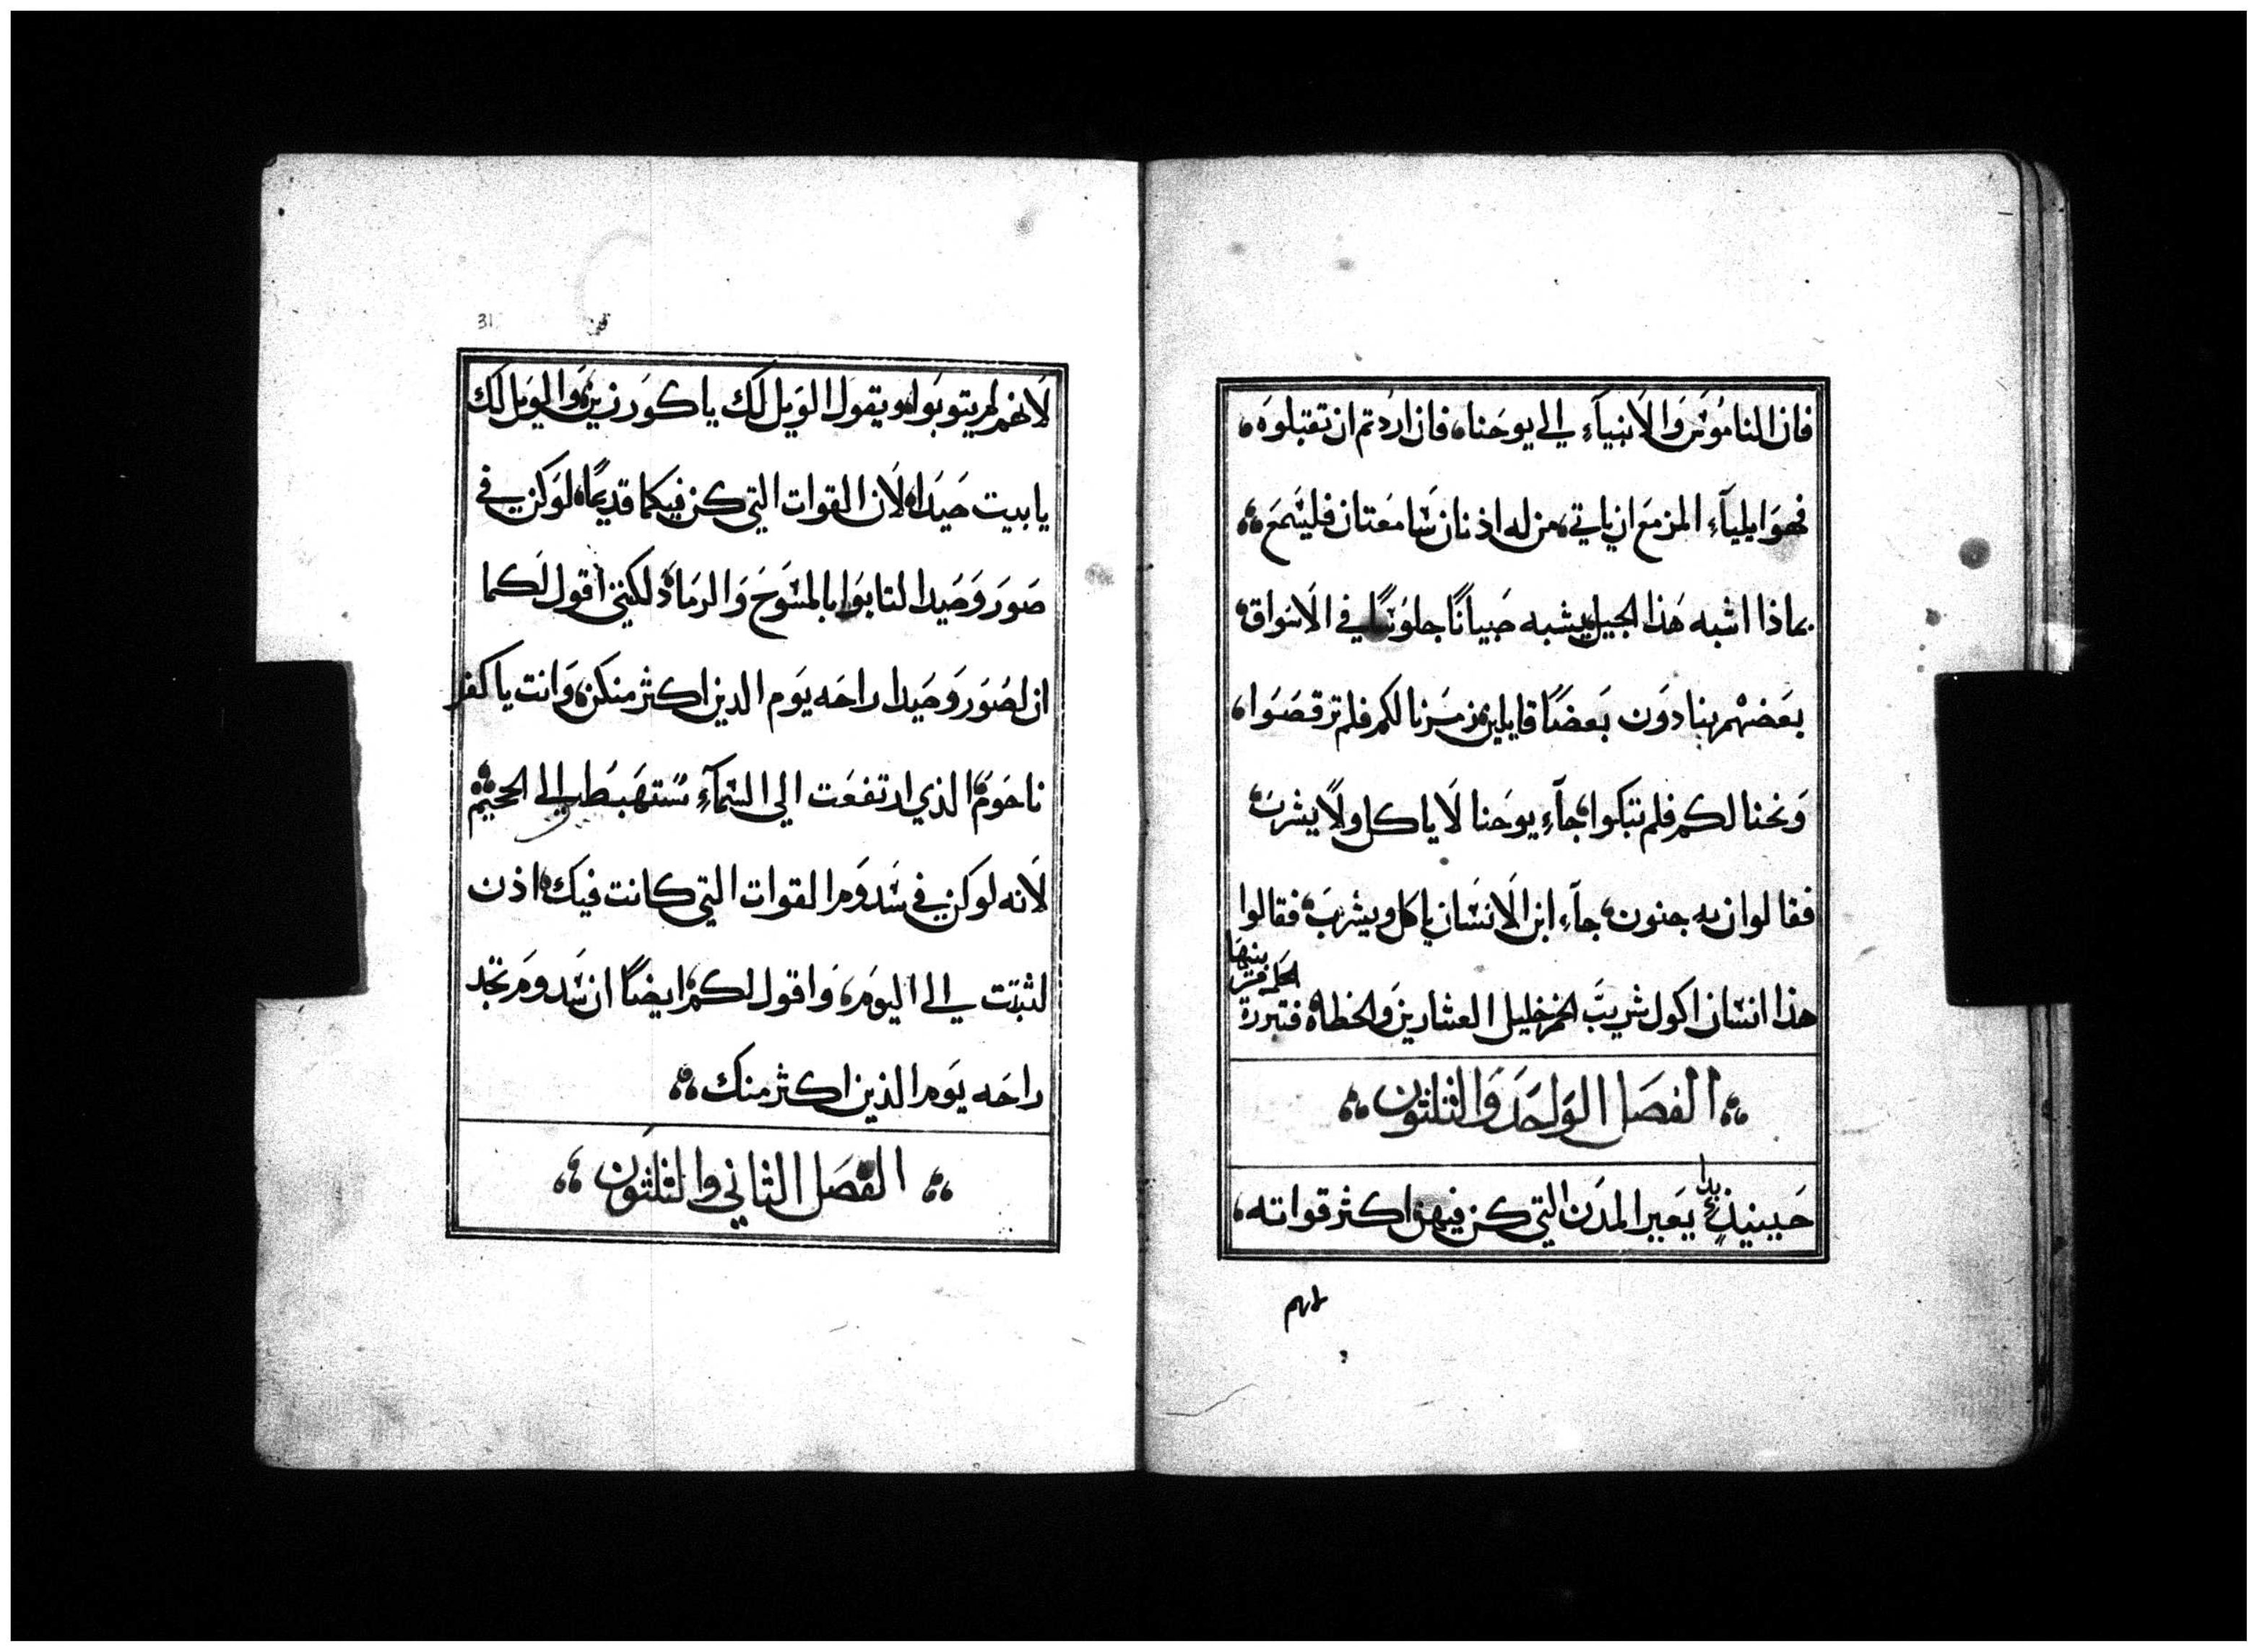 فان الناموس والانبياء الي يوحنا، فان اردتم ان تقبلوه،
فهو ايلياء المزمع ان ياتي، من له اذنان سامعتان فليسمع
بماذا اشبه هذا الجيل يشبه صبيانًا جلوسًا في الاسواق،
بعضهم ينادون بعضًا قايلين زمرنا لكم فلم ترقصوا،
ونحنا لكم فلم تبكوا، جاء يوحنا لا ياكل ولا يشرب،
فقالوا ان به جنون، جاء ابن الانسان ياكل ويشرب، فقالوا
هذا انسان اكول شريب الخمر خليل العشارين والخطاه فتبررة
الحكمة من بنيها
الفصل الواحد والثلثون
حينيذٍ بدا يعير المدن التي كن فيهن اكثر قواته،
لانهم
31
لانهم لم يتوبوا، ويقول الويل لك يا كورزين، والويل لك
يا بيت صيدا، لان القوات التي كن فيكما قديمًا، لو كن في
صور وصيدا لتابوا بالمسوح والرماد، لكني أقول لكما
ان لصور وصيدا راحه يوم الدين اكثر منكن، وانت يا كفر
ناحوم، الذي ارتفعت الي السماء ستهبطي الي الجحيم
لانه لو كن في سدوم القوات التي كانت فيك، اذن
لثبتت الي اليوم، واقول لكم، ايضًا ان سدوم تجد
راحه يوم الدين اكثر منك
الفصل الثاني والثلثون